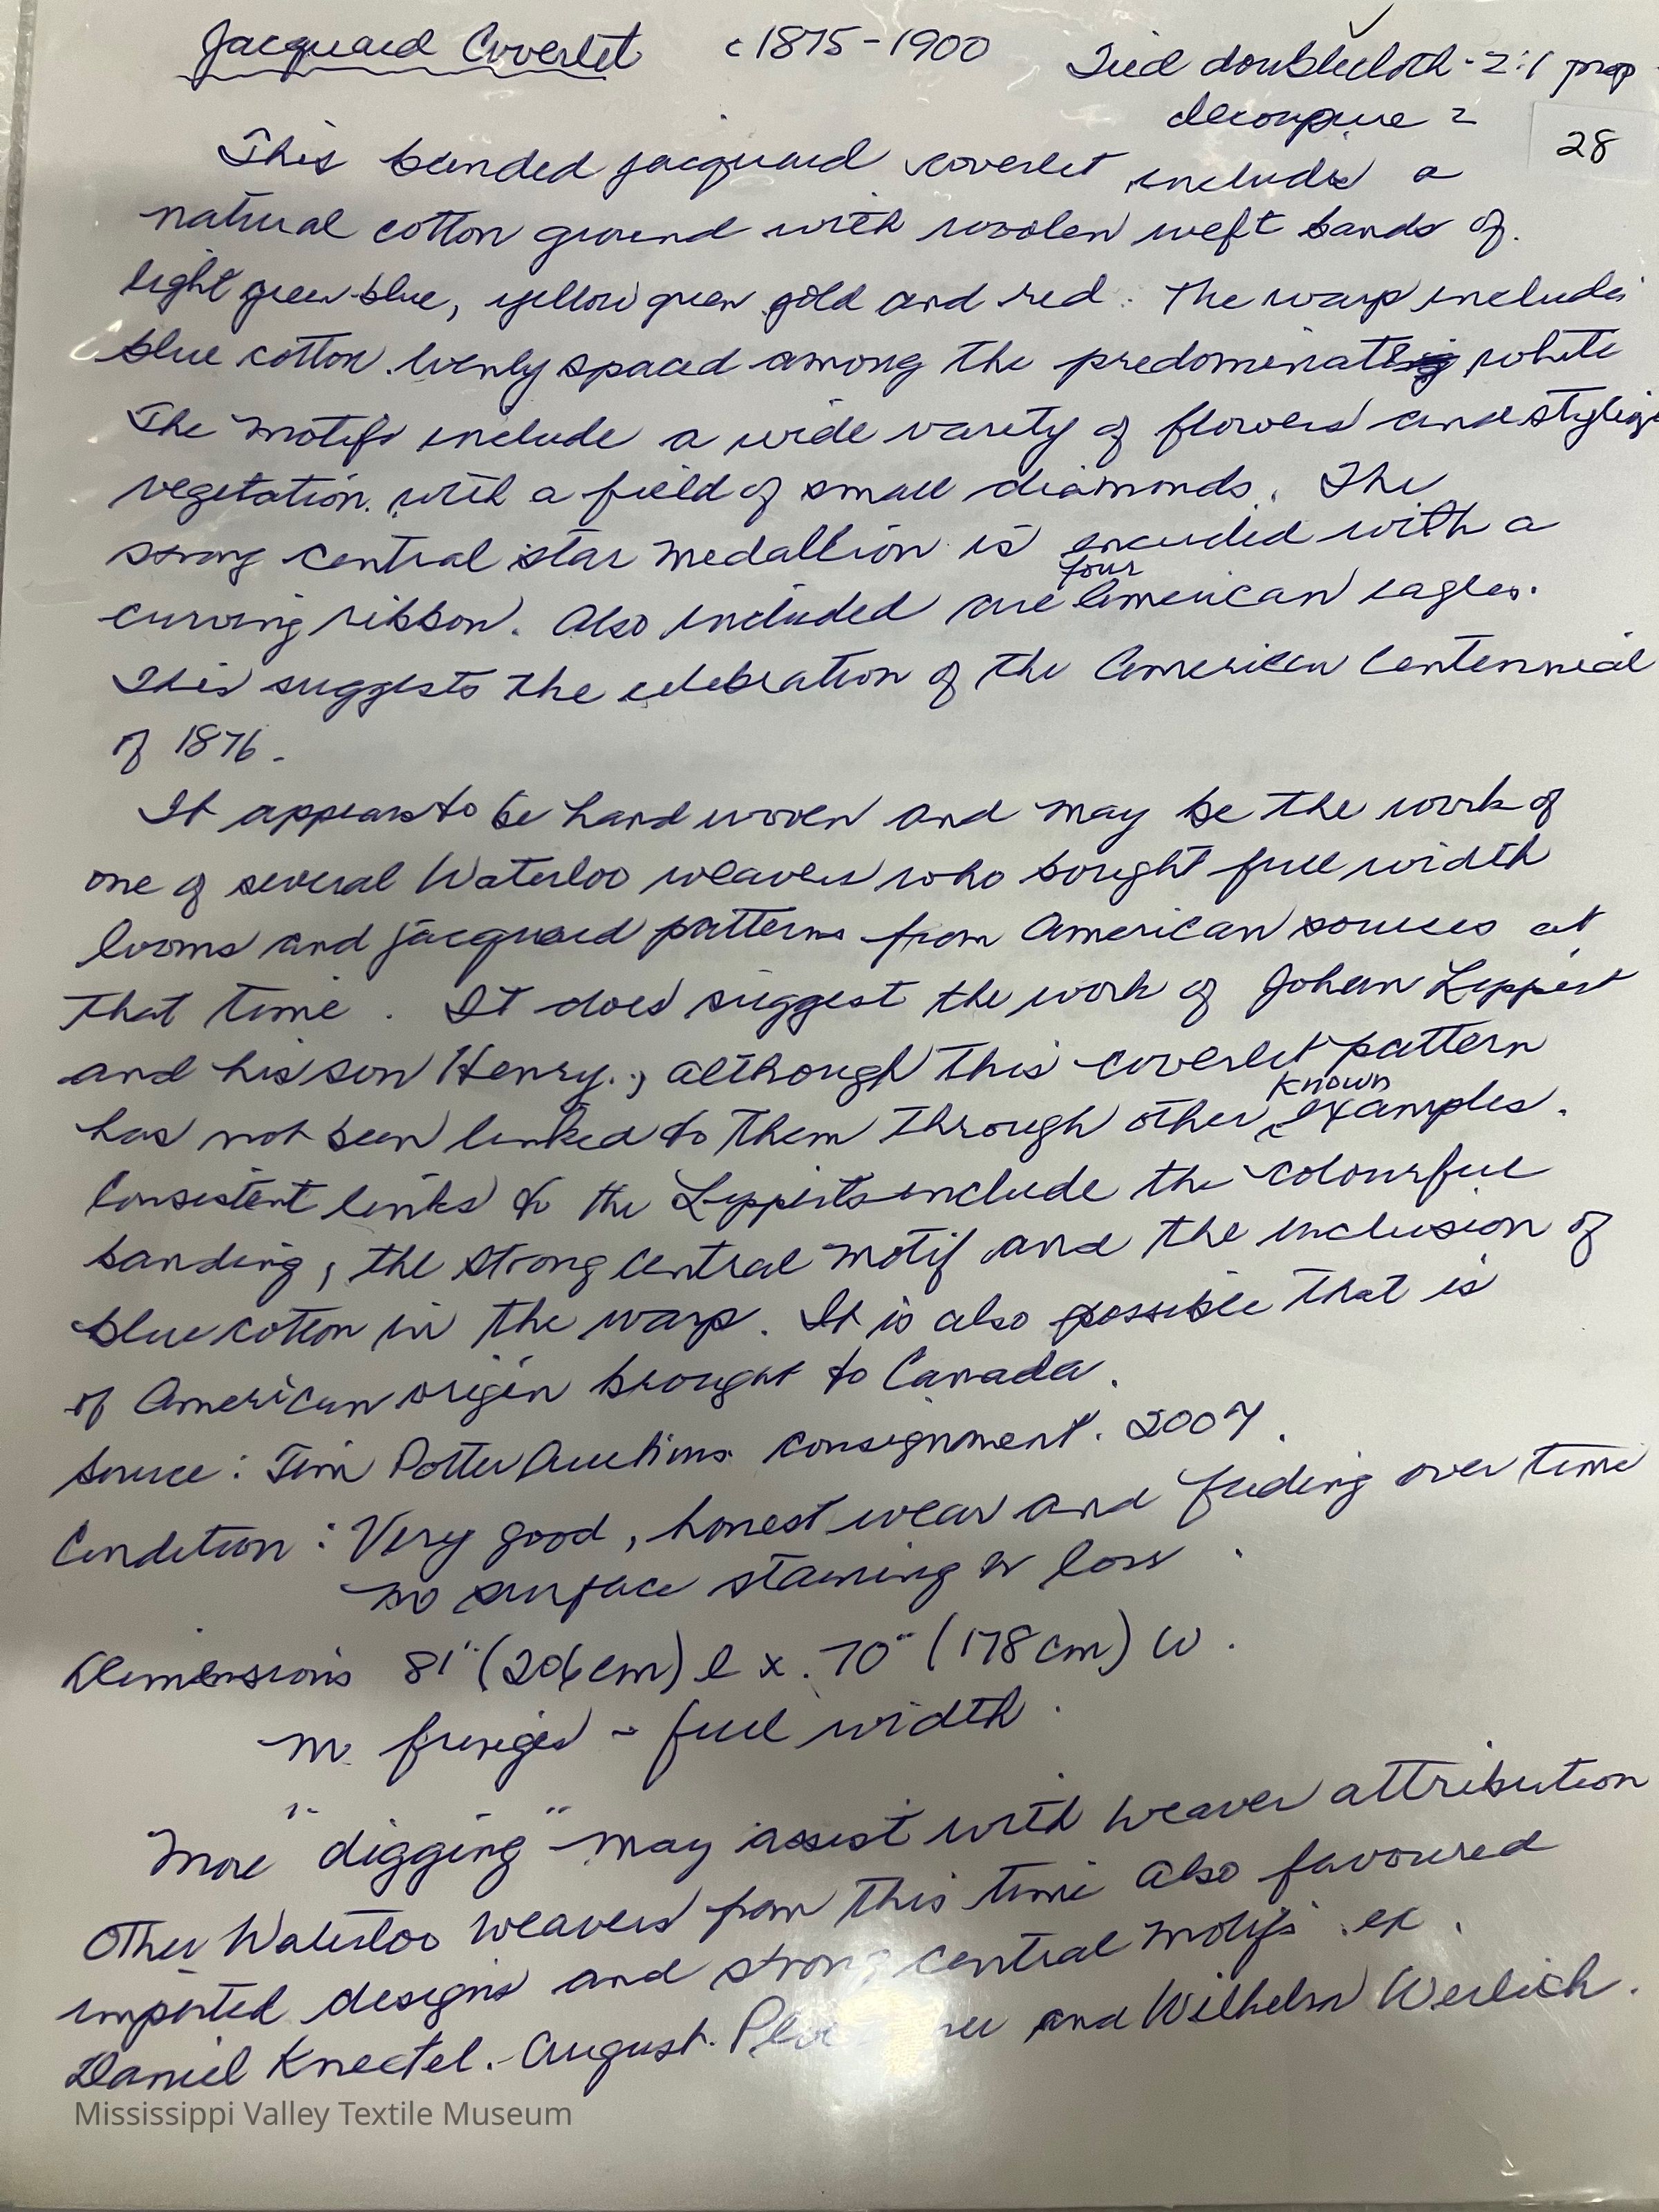 Jacquard Coverlet c1875-1900 Tied doublecloth - 2:1 prop
decoupure 2
28
This banded jacquard coverlet includes a
natural cotton ground with woolen weft bands of
light green-blue, yellow green gold and red. The warp includes
blue cotton evenly spaced among the predominate white
The motifs include a wide variety of flowers and
vegetation with a field of small diamonds. The
strong central star medallion is encircled with a
curving ribbon. Also included are four American eagles.
This suggests the celebration of the American Centennial
of 1876.
It appears to be hand woven and may be the work of
one of several Waterloo weavers who bought full width
looms and jacquard patterns from American sources at
that time. It does suggest the work of Johan Lippert
and his son Henry., although this coverlet pattern
has not been linked to them through other known examples.
Consistent links to the Lipperts include the colourful
banding, the strong central motif and the inclusion of
blue cotton in the warp. It is also possible that is
of American origin brought to Canada.
Source: Jim Potter Auctions consignment. 2007.
Condition: Very good, honest wear and fading over time
no surface staining or loss.
Dimensions 81" (206cm) l x 70" (178cm) W.
no fringes - full width.
More "digging" may assist with weaver attribution
Other Waterloo weavers from this time also favoured
imported designs and strong central motifs ex.
Daniel Knectel. August. and Wilhelm Werlich.
Mississippi Valley Textile Museum